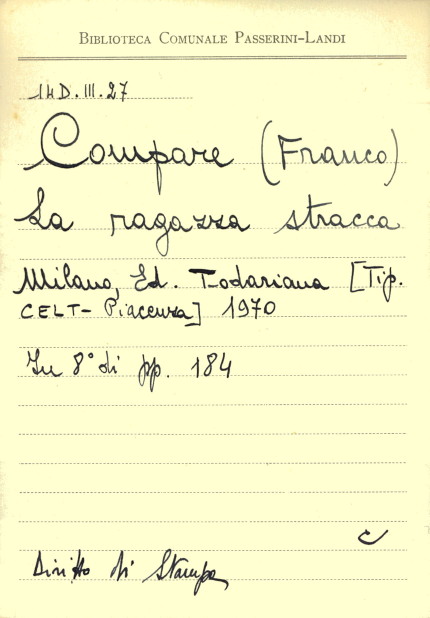 BIBLIOTECA COMUNALE PASSERINI-LANDI
14D.III.27
Compare (Franco)
La ragazza stracca
Milano, Ed. Todariana [Tip.
CELT- Piacenza] 1970
In 8° di pp. 184
C
Diritto di Stampa